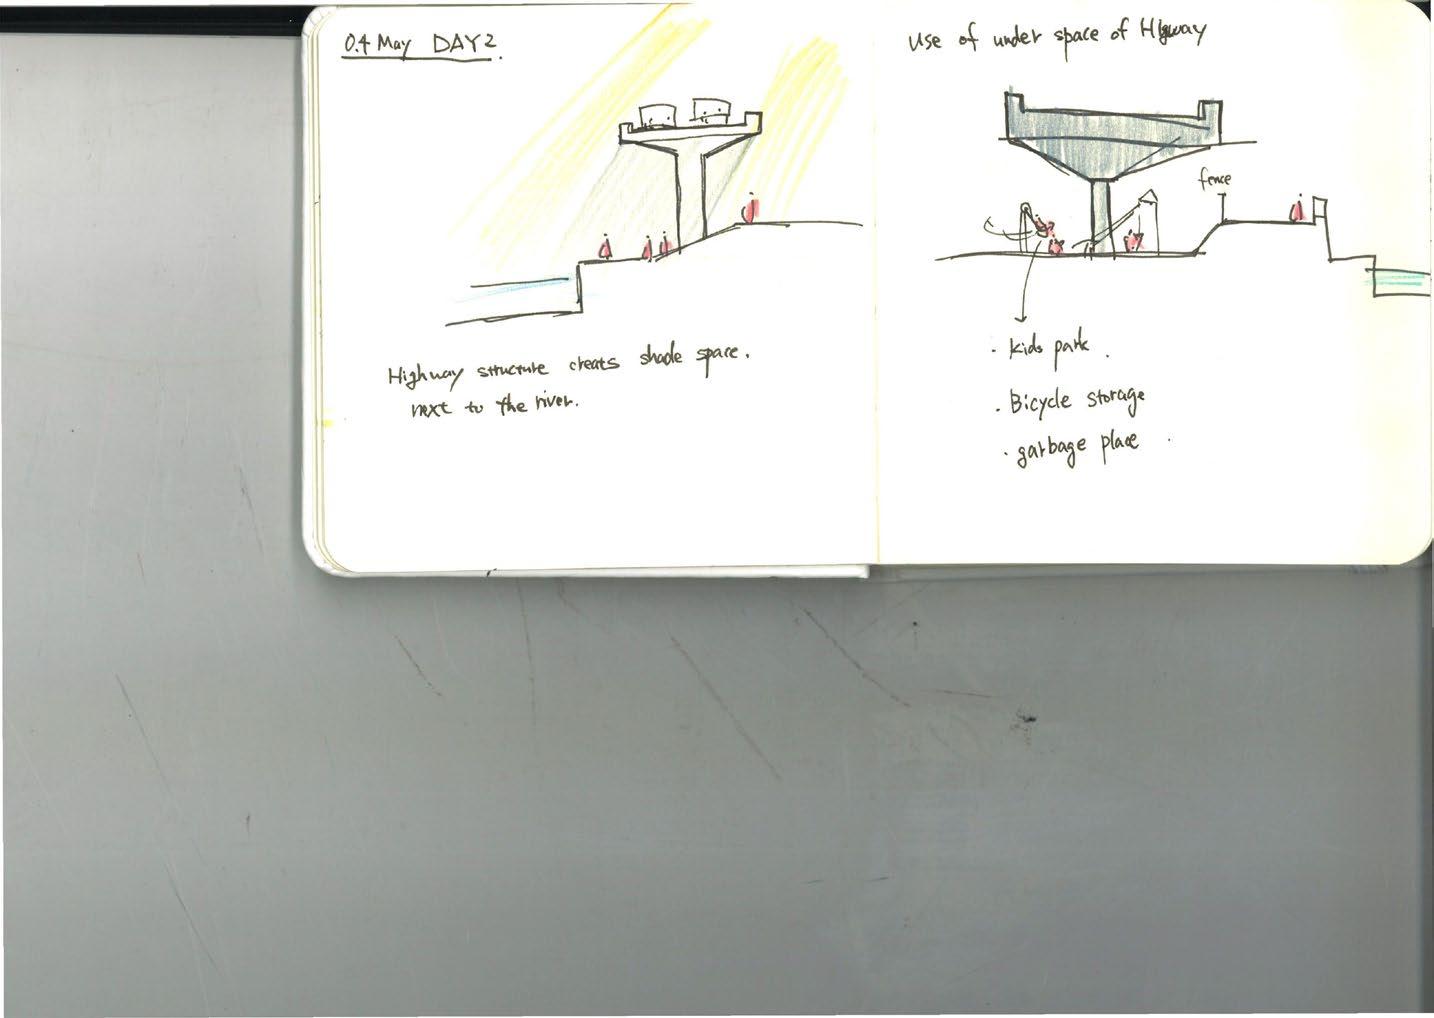 04 May DAY 2.
Highway structure creats shade space.
next to the river.
Use of under space of Higway
fence
· kids park.
· Bicycle storage
· garbage place.